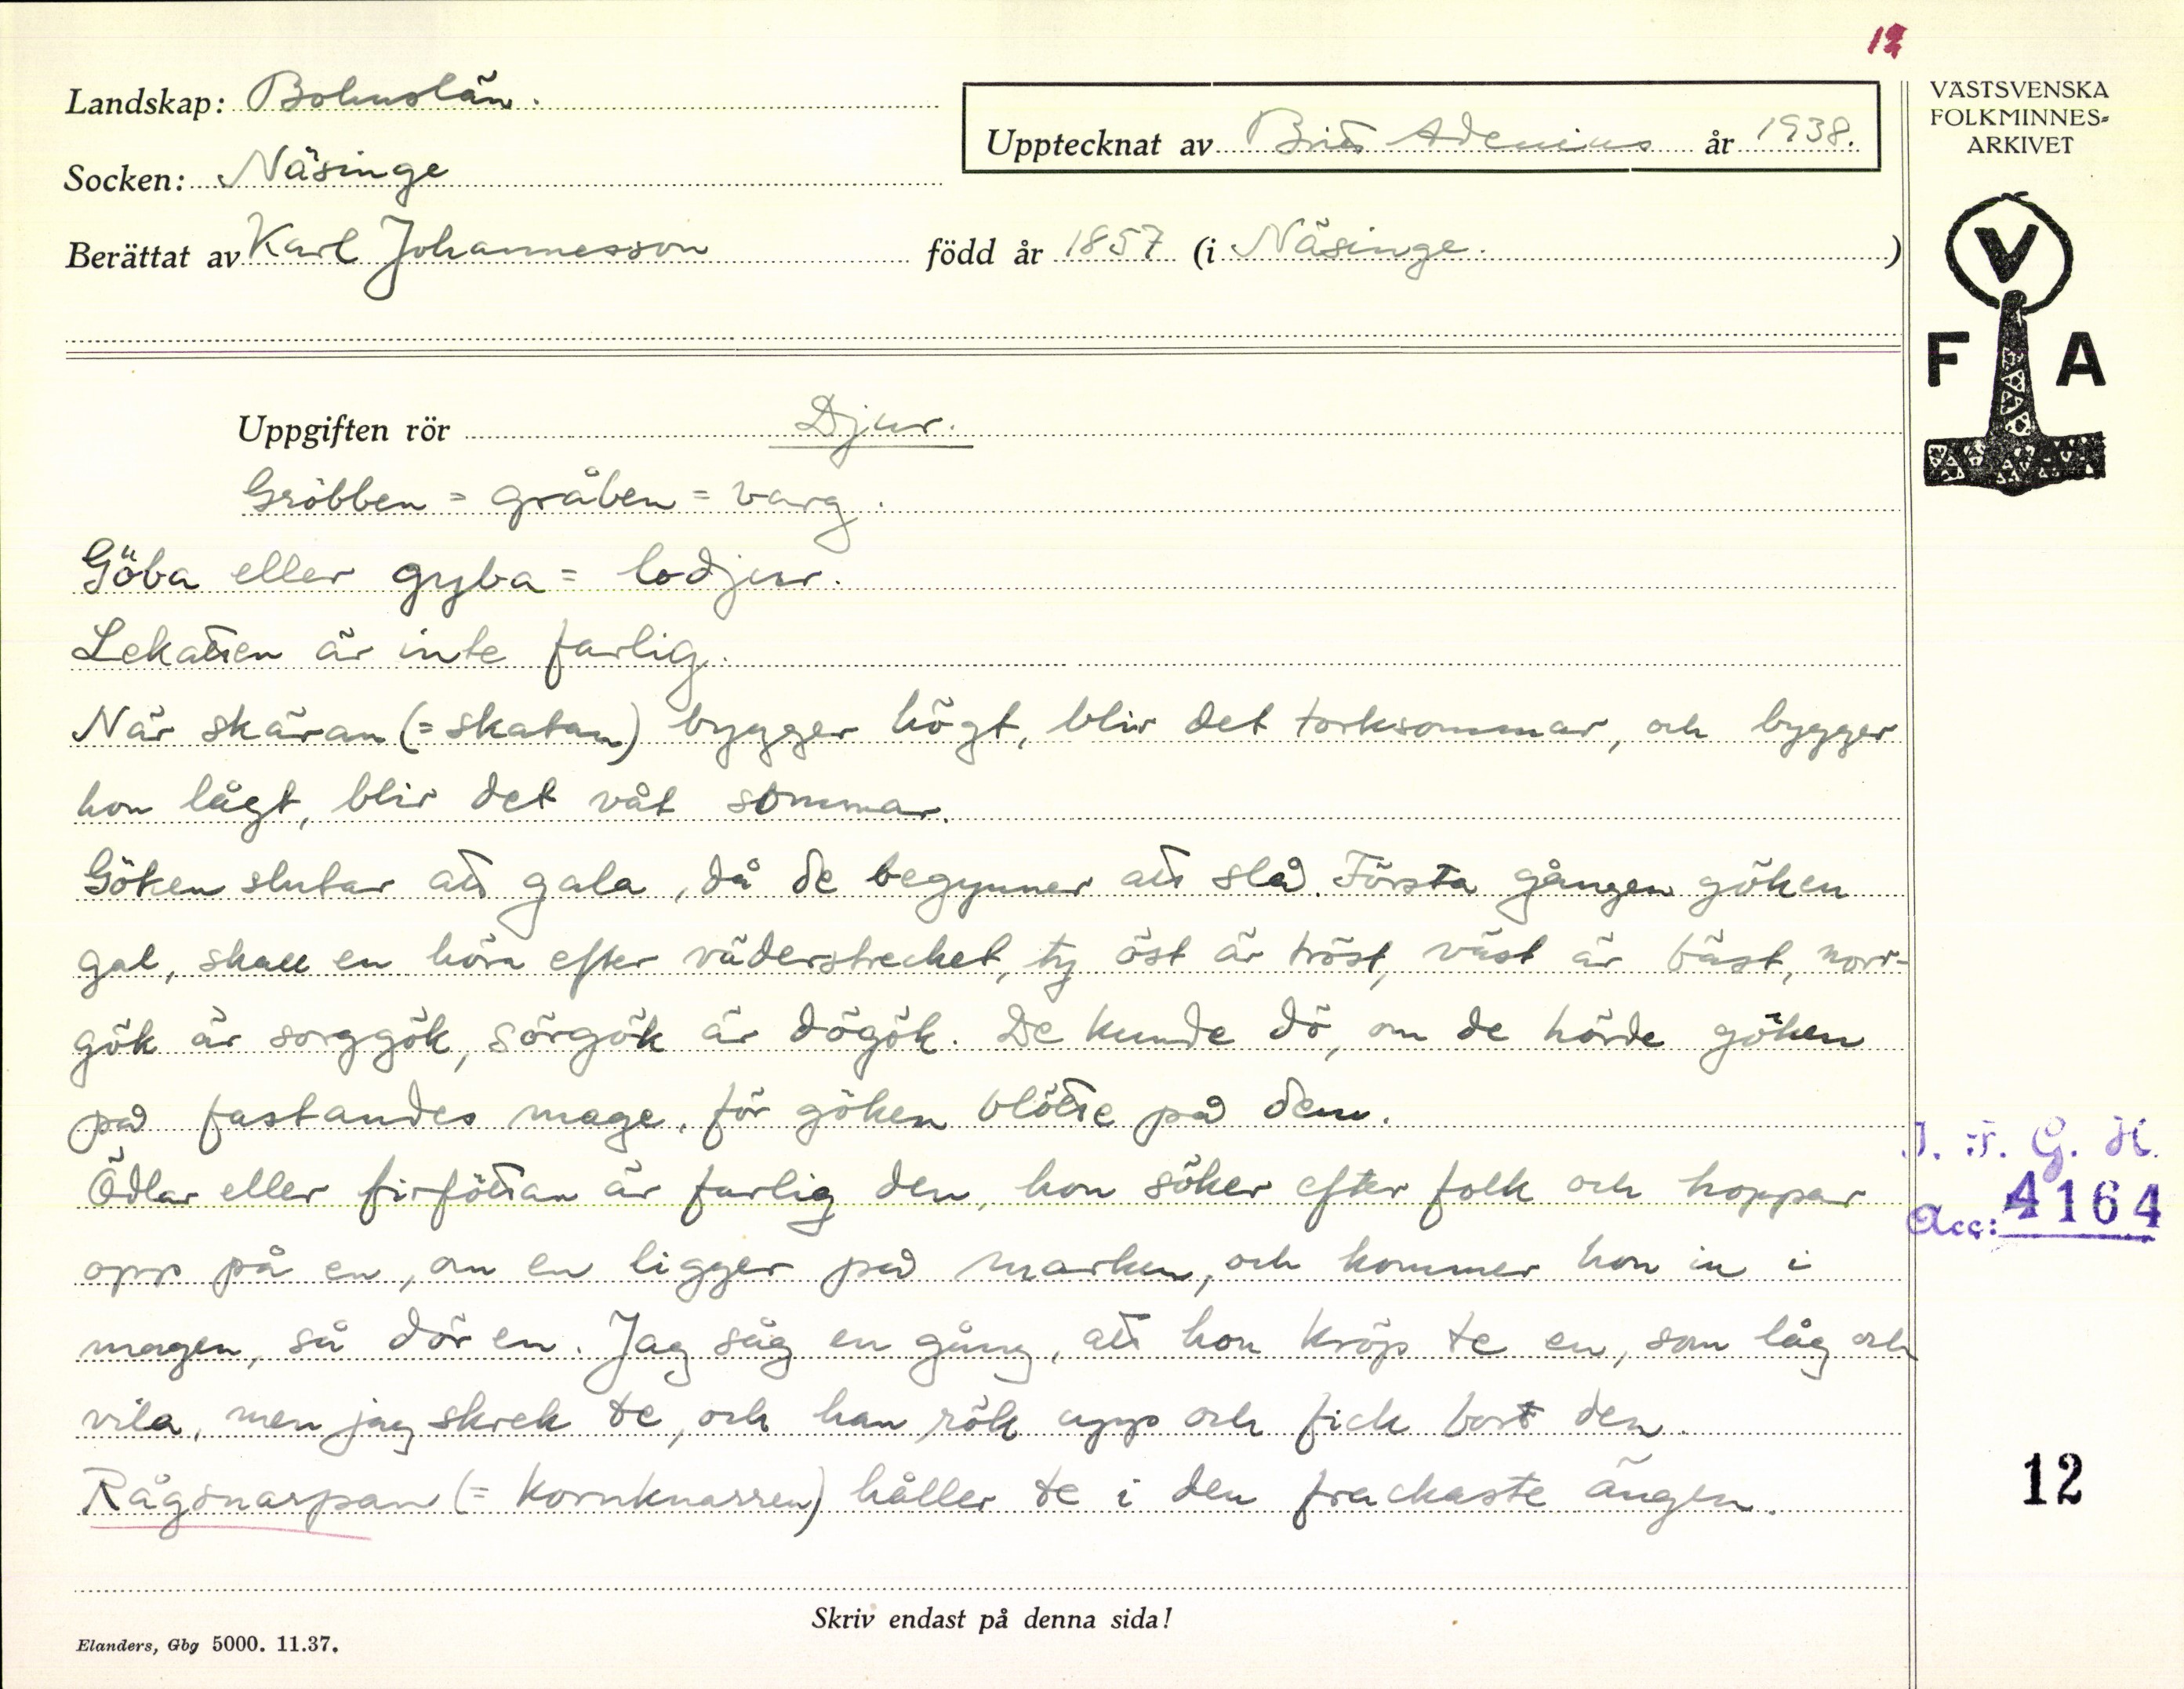 12
Landskap: Bohuslän.
Upptecknat av Britt Adenius år 1938.
VÄSTSVENSKA
FOLKMINNES-
ARKIVET
Socken: Näsinge
Berättat av Karl Johannesson född år 1857 (i Näsinge.)
V
F A
Uppgiften rör Djur.
Gröbben = gråben = varg.
Göba eller gyba = lodjur.
Lekatten är inte farlig.
När skäran (= skatan) bygger högt, blir det torksommar, och bygger
hon lågt, blir det våt sommar.
Göken slutar att gala, då de begynner att slå. Första gången göken
gal, skall en höra efter väderstrecket, ty öst är tröst, väst är bäst, norr-
gök är sorggök, sörgök är dögök. De kunde dö, om de hörde göken
på fastandes mage, för göken blötte på dem.
Ödlar eller firföttan är farlig den, hon söker efter folk och hoppar
opp på en, om en ligger på marken, och kommer hon in i
magen, så dör en. Jag såg en gång, att hon kröp te en, som låg och
vila, men jag skrek te, och han rök upp och fick bort den.
Rågsnarpan (= kornknarren) håller te i den frackaste ängen.
I. F. G. H.
Acc: 4164
12
Skriv endast på denna sida!
Elanders, Gbg 5000. 11.37.